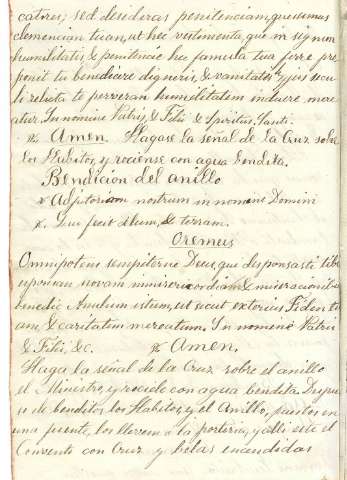 catres; sed desideras penitenciam, quesimas
clemencian tuan, ut hec vestimenta, que in signun
humilitatis, & penitencie hec famula tua ferre pro
ponit tu benedicere digneris, & vanitate hujus secu
li relicta te perveran humilitatem induere mere
atur. In nomine Patris, & Filii & Spiritus, Santi.
R. Amen. Hagase la señal de la Cruz sobre
los Habitos, y rociense con agua bendita.
Bendicion del anillo
V Adjutorium nostrum in nomine Domini
R. Qui fecit celum, & terram.
Oremus
Omnipotens sempiterne Deus, que desponsasti tibi
upnian novam inmisericordiam & miseracionibus
benedic Anulum istum, ut sicut exterius Fiden tu
am, & caritatem mercatum. In nomine Patris
& Filii, &c. R. Amen.
Haga la señal de la Cruz sobre el anillo
el Ministro, y rocielo con agua bendita. Despu
es de benditos los Habitos, y el Anillo, puestos en
una fuente, los llevan a la porteria, y alli este el
Convento con Cruz y belas encendidas